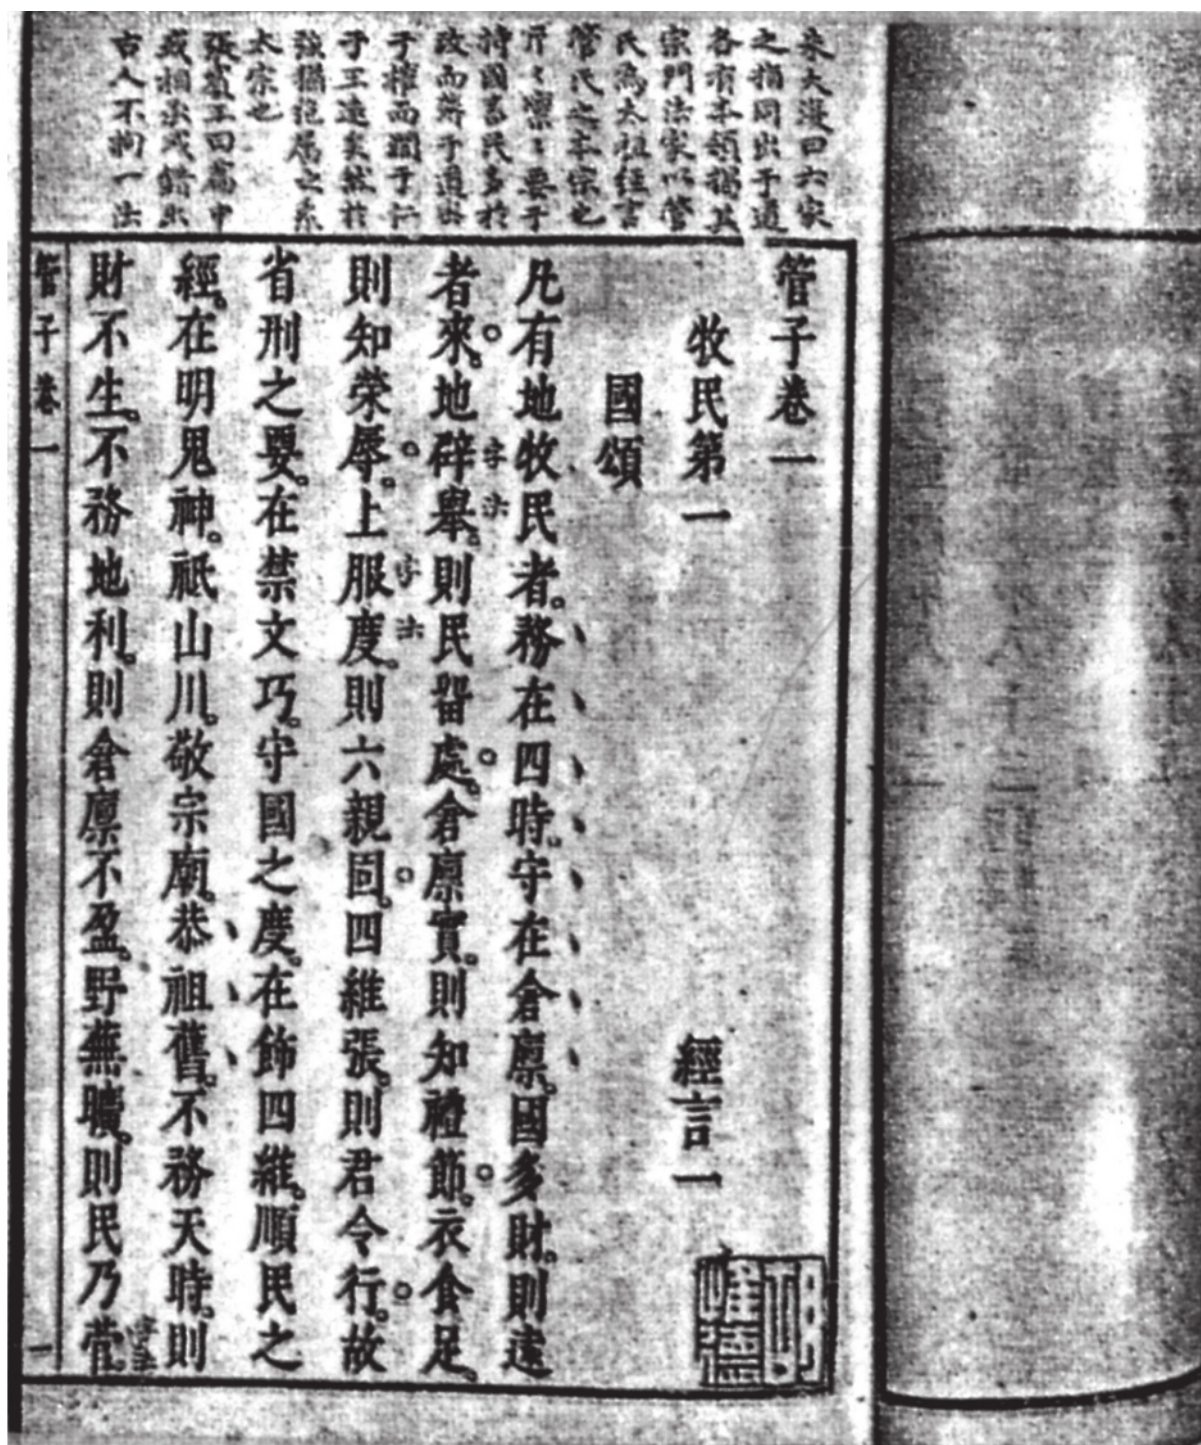 朱大復曰六家
之指同出于道
各有本領揭其
宗門法家以管
氏為太祖經言
管氏之本宗也
斤〻凜〻要于
持國畜民多於
政而于道出
于權而濶于仁
于王遠矣然於
強猶屬之系
太宗也
張賓王曰篇中
或相承或錯出
古人不拘一法
管子卷一
牧民第一 經言一
國頌
凡有地牧民者。務在四時。守在倉廪。國多財。則遠
者來。地辟舉。則民畱處。倉廪實。則知禮節。衣食足。
字法
則知榮辱。上服度。則六親固。四維張。則君令行。故
字法
省刑之要。在禁文巧。守國之度。在飾四維。順民之
經。在明鬼神。祇山川。敬宗廟。恭祖舊。不務天時。則
財不生。不務地利。則倉廪不盈。野蕪曠。則民乃菅。
管子卷一 一